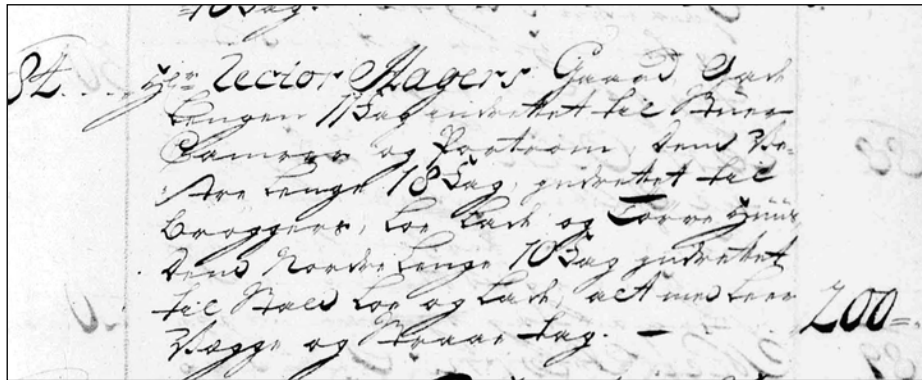 10 Fag.
84. Hr. Rector Hagers Gaard, Gade
Lengen 11 Fag indrettet til Stuer
Camerer og Portrom, dend Ve-
stre Lenge 18 Fag, indrettet til
Bryggers, Loe Lade og Törve Huus
dend Nordre Lenge 10 Fag indrettet
til Stald Loe og Lade, alt med Leer
Vægge og Straae tag. — 200=